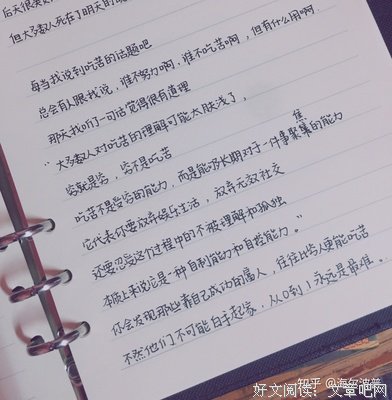 后天很美好
但大多数人死在了明天的晚
每当我说到吃苦的话题吧
总会有人跟我说，谁不努力啊，谁不吃苦啊，但有什么用啊
那天我听了一句话觉得很有道理
"大多数人对吃苦的理解可能太肤浅了，
穷就是穷，穷不是吃苦
吃苦不是受穷的能力，而是能够长期对于一件事聚焦的能力
它代表你要放弃娱乐生活，放弃无效社交
还要忍受这个过程中的不被理解和孤独
本质上来说它是一种自制能力和自控能力。"
你会发现那些靠自己成功的富人，往往比穷人更能吃苦
不然他们不可能白手起家，从0到1永远是最难。
知乎 @海尔波普
好文阅读：文章吧网